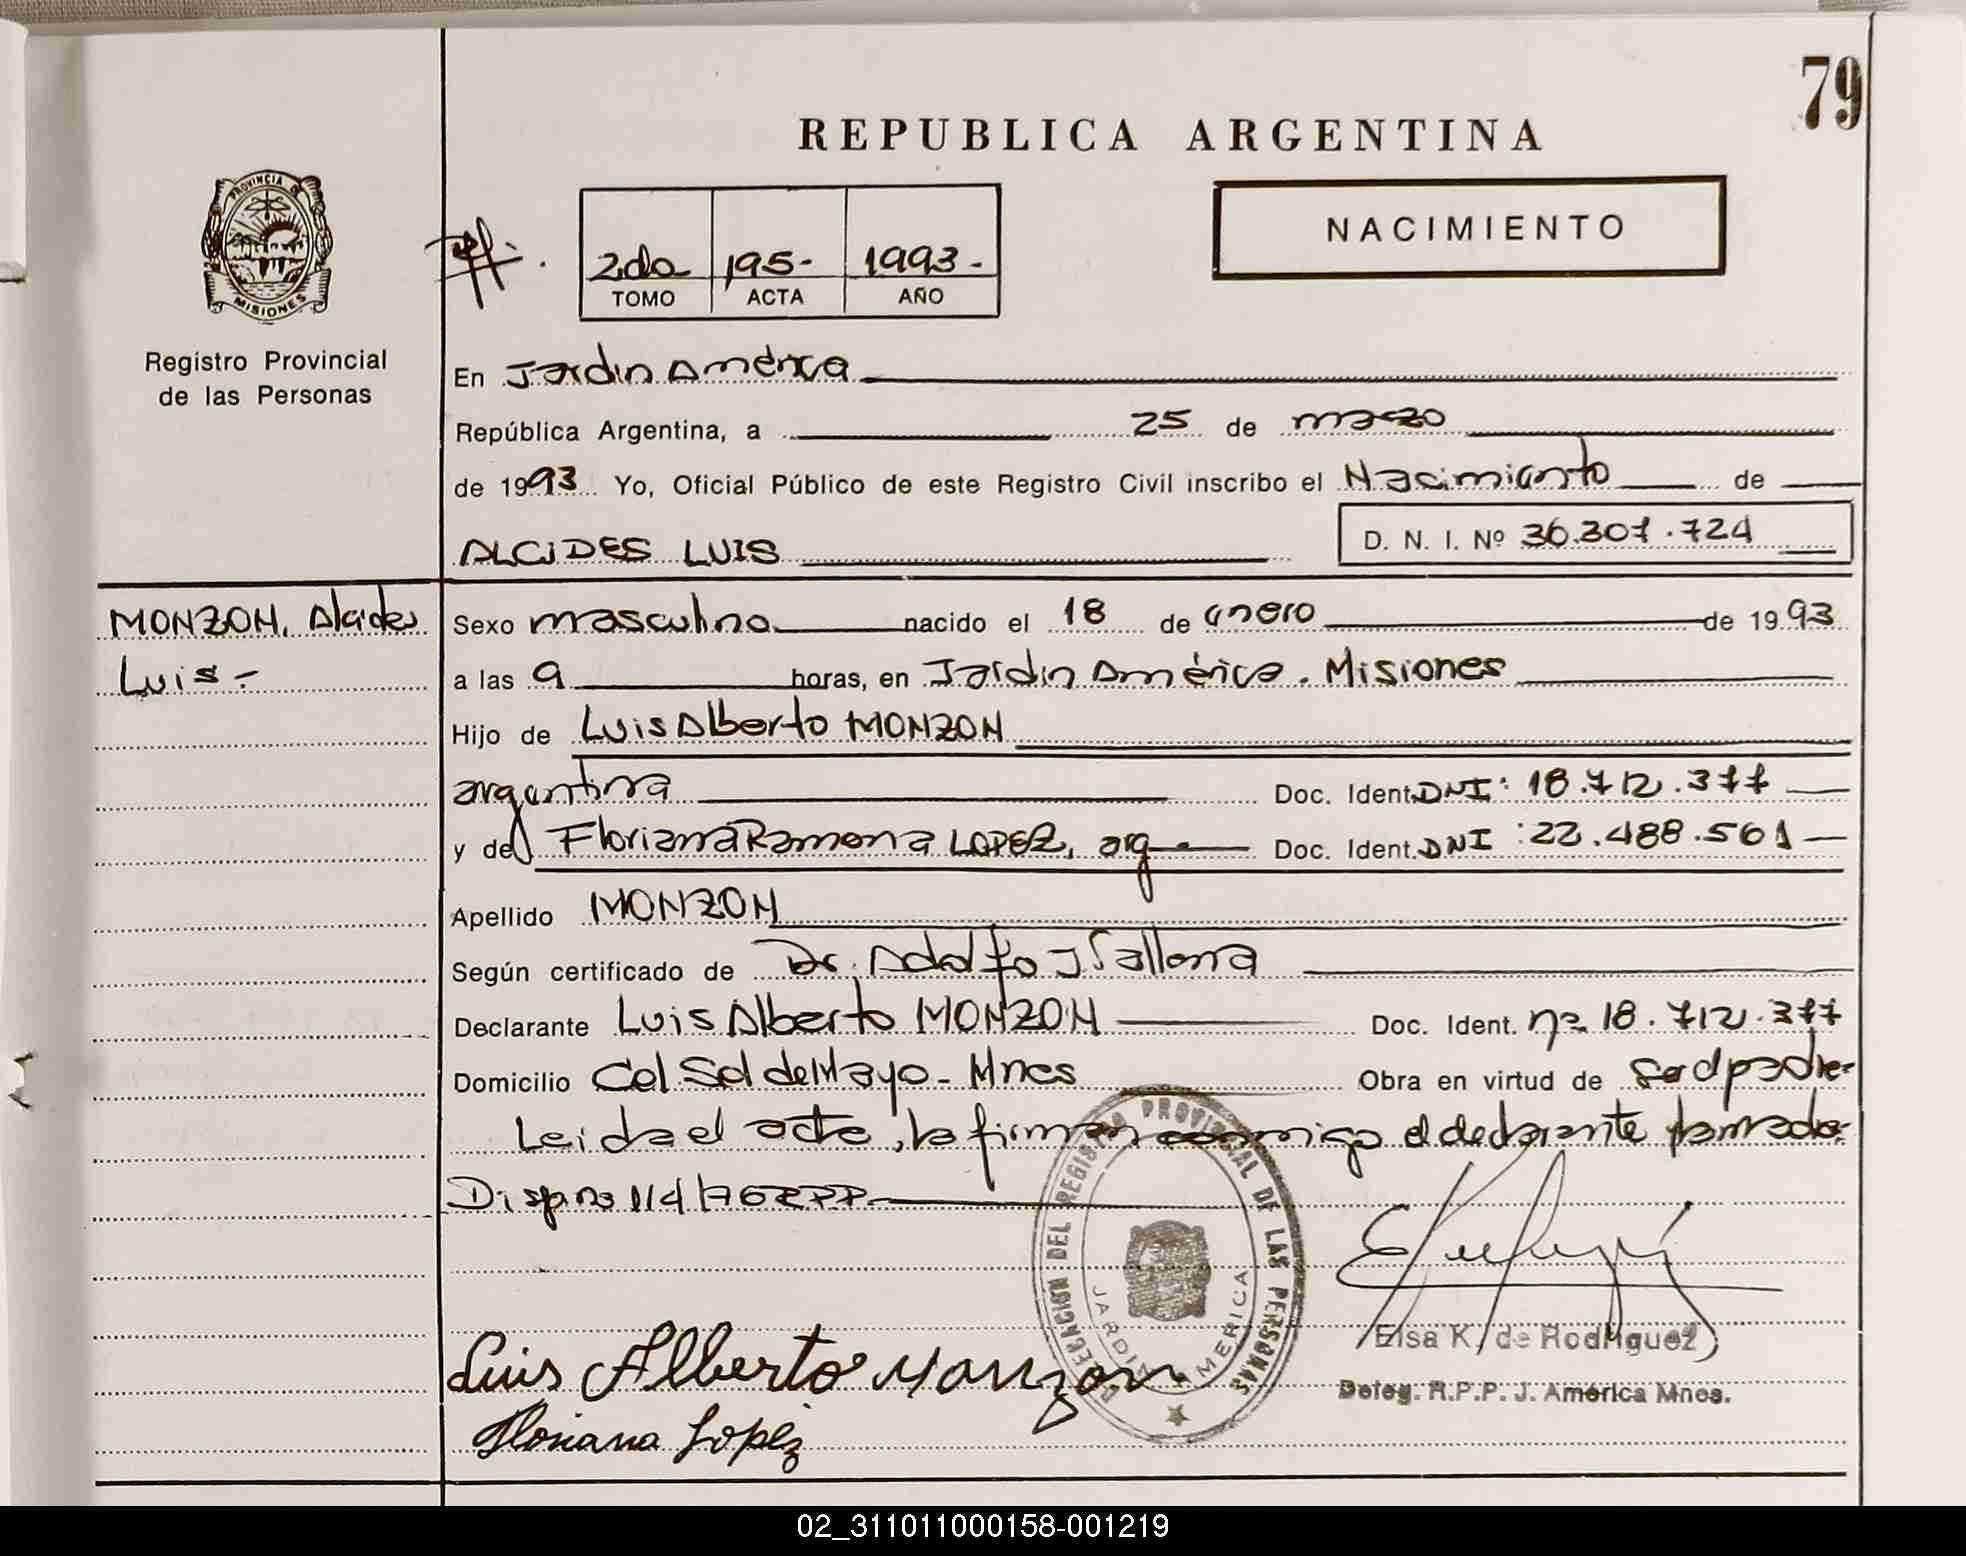 79
REPUBLICA ARGENTINA
PROVINCIA DE
MISIONES
Registro Provincial
de las Personas
2do 195- 1993-
TOMO ACTA AÑO
NACIMIENTO
En Jardin América
República Argentina, a 25 de marzo
de 1993 Yo, Oficial Público de este Registro Civil inscribo el Nacimiento de
ALCIDES LUIS D. N. I. Nº 36.307.724
MONZON, Alcides
Luis -
Sexo masculino nacido el 18 de enero de 1993
a las 9 horas, en Jardin América. Misiones
Hijo de Luis Alberto MONZON
argentina Doc. Ident. DNI: 18.712.377
y de Floriana Ramona LOPEZ, arg Doc. Ident. DNI: 22.488.561
Apellido MONZON
Según certificado de Dr. Adolfo J
Declarante Luis Alberto MONZON Doc. Ident. nº 18.712.377
Domicilio Col. Sol de Mayo - Mnes Obra en virtud de ser el padre-
Leida el acta, la firman conmigo el declarante y la madre.
Disp. nº 114/76 RPP-
DELEGACION DEL REGISTRO PROVINCIAL DE LAS PERSONAS
JARDIN AMERICA
Elsa K. de Rodriguez
Deleg. R.P.P. J. América Mnes.
Luis Alberto Monzon
Floriana Lopez
02_311011000158-001219